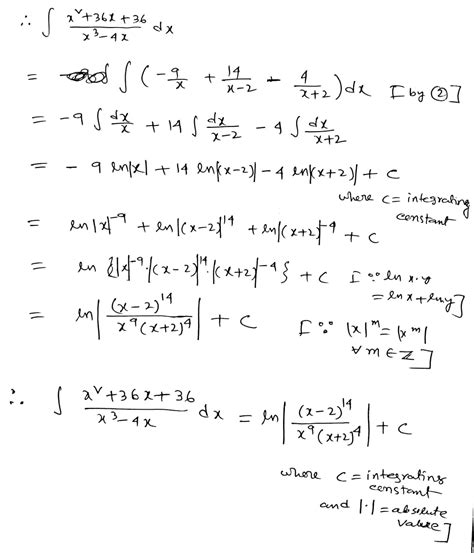 ∴ ∫ (x²+36x+36)/(x³-4x) dx
= ∫ (-9/x + 14/(x-2) - 4/(x+2)) dx [by ②]
= -9 ∫ dx/x + 14 ∫ dx/(x-2) - 4 ∫ dx/(x+2)
= - 9 ln|x| + 14 ln|(x-2)| - 4 ln|(x+2)| + c
where c = integrating constant
= ln|x|⁻⁹ + ln|(x-2)|¹⁴ + ln|(x+2)|⁻⁴ + c
= ln {|x|⁻⁹·|(x-2)|¹⁴·|(x+2)|⁻⁴} + c [∵ ln x·y = ln x + ln y]
= ln |(x-2)¹⁴/(x⁹(x+2)⁴)| + c [∵ |x|ᵐ = |xᵐ| ∀ m ∈ ℤ]
∴ ∫ (x²+36x+36)/(x³-4x) dx = ln |(x-2)¹⁴/(x⁹(x+2)⁴)| + c
where c = integrating constant
and |·| = absolute value]